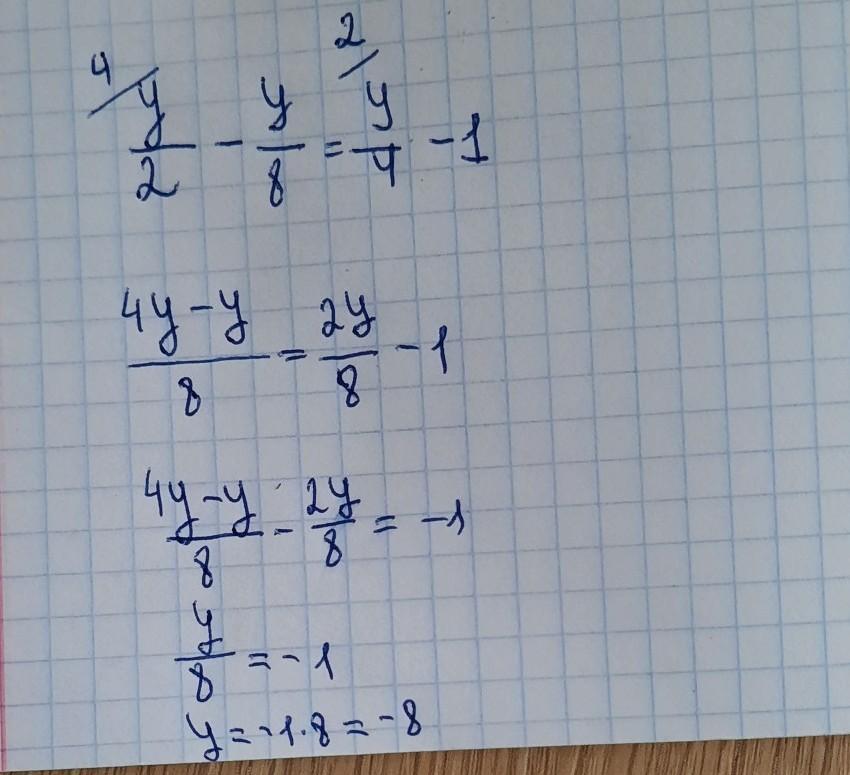 4/ y/2 - y/8 = 2/ y/4 - 1
4y-y/8 = 2y/8 - 1
4y-y/8 - 2y/8 = -1
y/8 = -1
y = -1·8 = -8